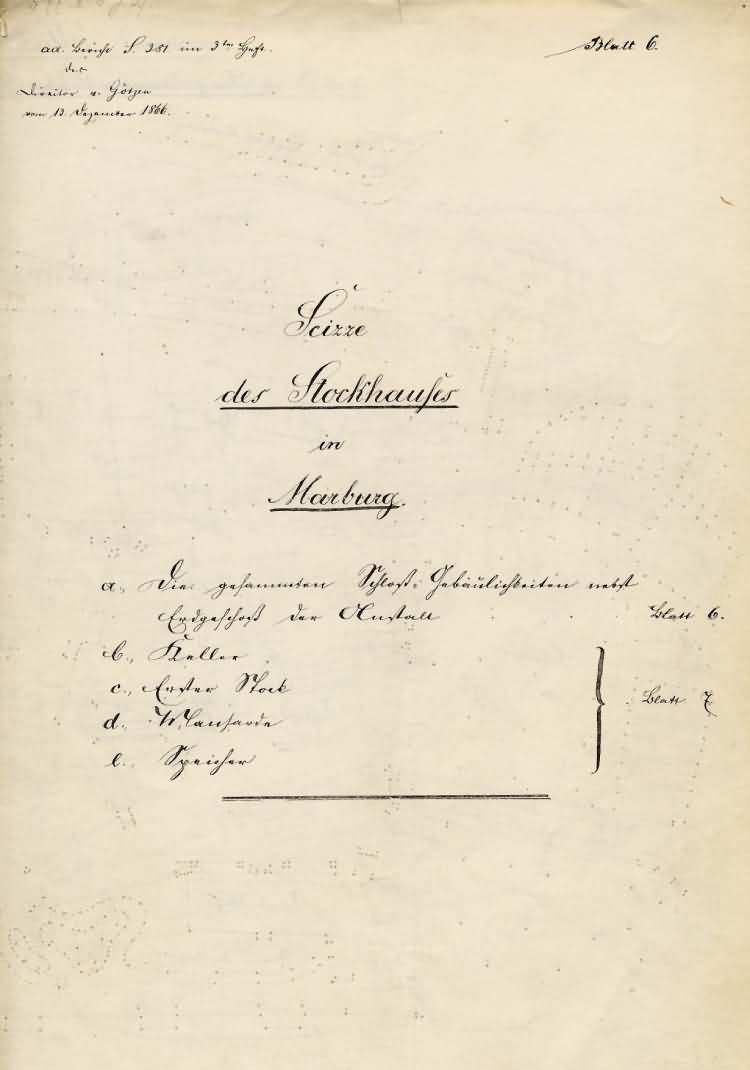 ad. Bericht S. 281 im 3ten Heft.
des
Director v. Götzen
vom 13. Dezember 1866.
Blatt 6.
Scizze
des Stockhauses
in
Marburg.
a., Die gesammten Schloß-Gebäulichkeiten nebst
Erdgeschoß der Anstalt Blatt 6.
b., Keller
c., Erster Stock
d., Mansarde
e., Speicher
Blatt 7